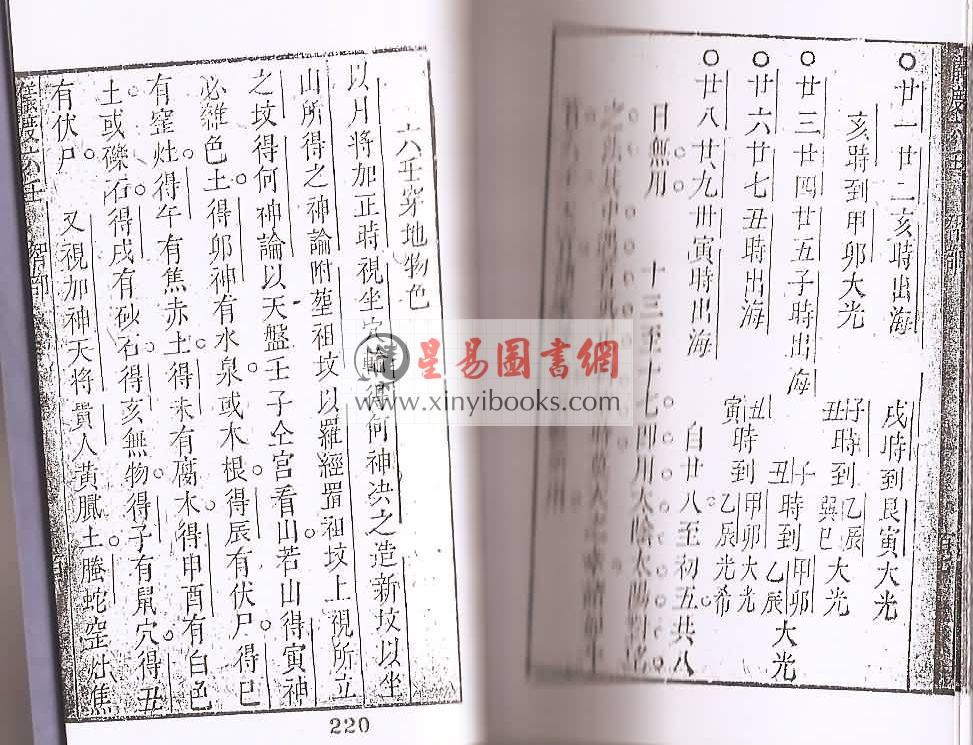 廿一廿二亥時出海 戌時到艮寅大光
亥時到甲卯大光 子時到乙辰 丑時到巽巳大光
廿三廿四廿五子時出海 子時到甲卯 丑時到乙辰大光
廿六廿七丑時出海 丑時到甲卯大光 寅時到乙辰光希
廿八廿九卅寅時出海 自廿八至初五共八
日無用 十三至十七即用太陰太陽對
六壬穿地物色
以月將加正時視坐穴 何神決之造新坟以坐
山所得之神論附塟祖坟以羅經置祖坟上視所立
之坟得何神論以天盤壬子仝宮看山若山得寅神
必雜色土得卯神有水泉或木根得辰有伏尸得巳
有窑灶得午有焦赤土得未有腐木得申酉有白色
土或礫石得戌有砂石得亥無物得子有鼠穴得丑
有伏尸 又視加神天將貴人黃膩土螣蛇窑灶焦
儀度六壬
220
星易圖書網
www.xinyibooks.com